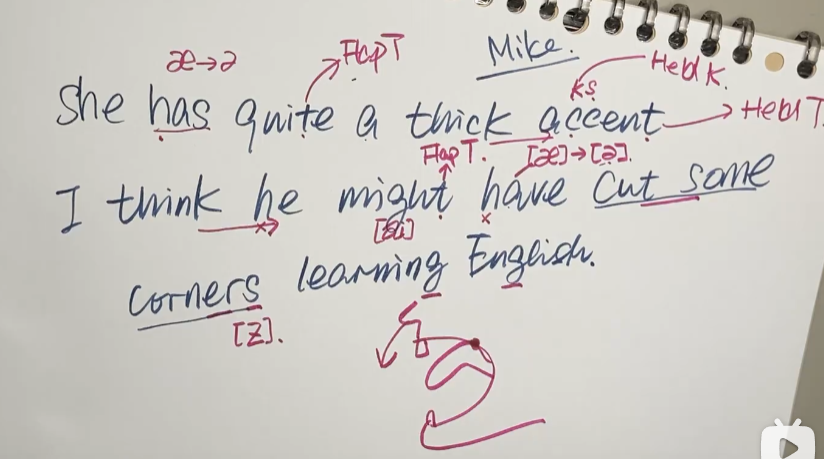 Mike.
æ→ə
Flap T
Held K.
She has quite a thick accent
ks
Held T.
Flap T.
[æ]→[ə].
I think he might have cut some
[ai]
corners learning English.
[z].